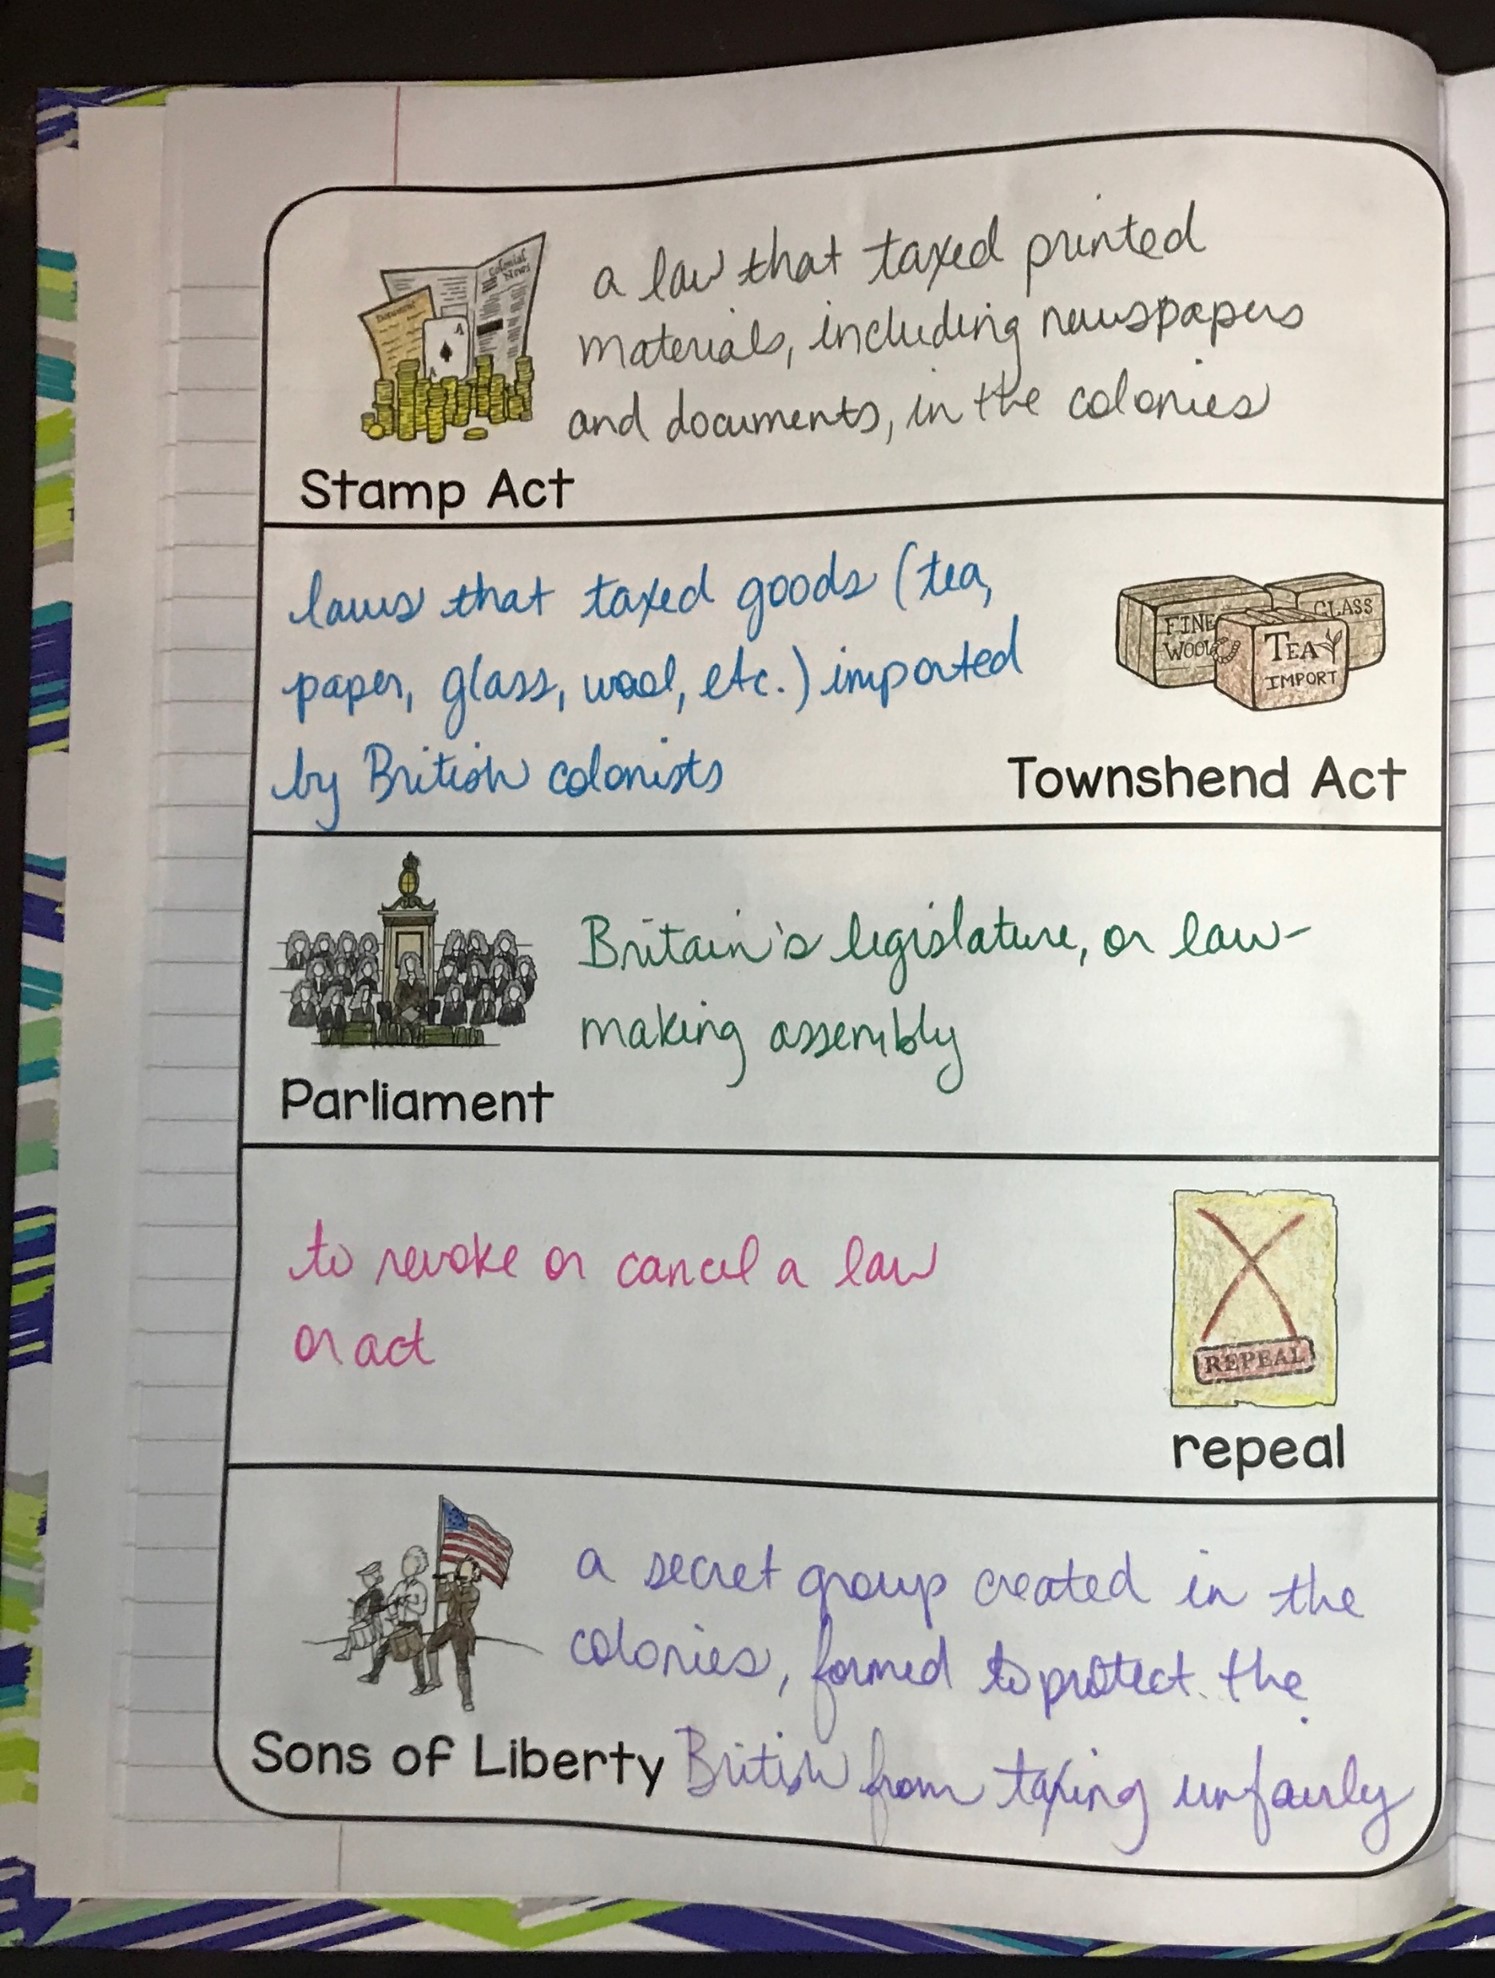 Colonial
News
Document
A
A
a law that taxed printed
materials, including newspapers
and documents, in the colonies
Stamp Act
laws that taxed goods (tea,
paper, glass, wool, etc.) imported
by British colonists
FINE
WOOL
GLASS
TEA
IMPORT
Townshend Act
Britain's legislature, or law-
making assembly
Parliament
to revoke or cancel a law
or act
REPEAL
repeal
a secret group created in the
colonies, formed to protect the
Sons of Liberty British from taxing unfairly